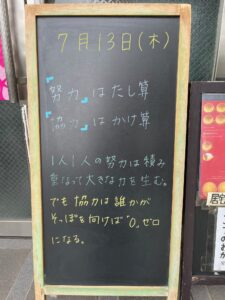 7月13日(木)
「努力」はたし算
「協力」はかけ算
1人1人の努力は積み
重なって大きな力を生む。
でも協力は誰かが
そっぽを向けば"0"ゼロ
になる。